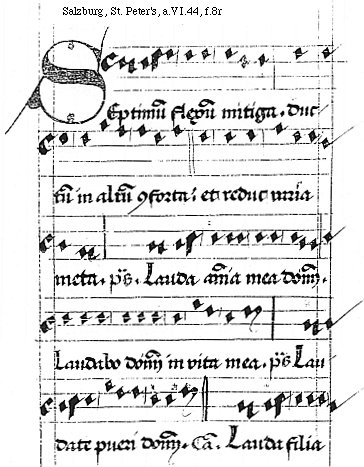 Salzburg, St. Peter's, a.VI.44, f.8r
Septimū flexū mitiga. duc
tū in altū ꝯforta; et reduc varia
meta. pˢ. Lauda aīa mea dom̄.
Laudabo dom̄ in vita mea. pˢ Lau
date pueri dom̄. Cā. Lauda filia